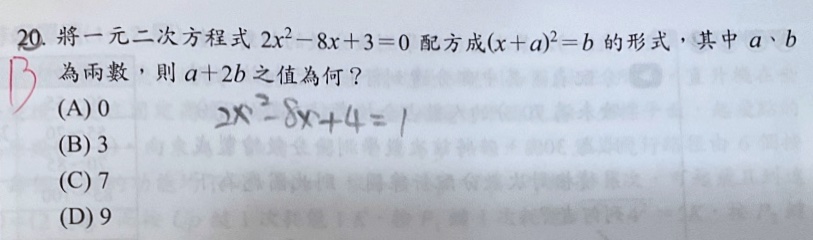 20. 將一元二次方程式 2x²－8x＋3＝0 配方成(x＋a)²＝b 的形式，其中 a、b
B
為兩數，則 a＋2b 之值為何？
(A) 0
2x²-8x+4=1
(B) 3
(C) 7
(D) 9